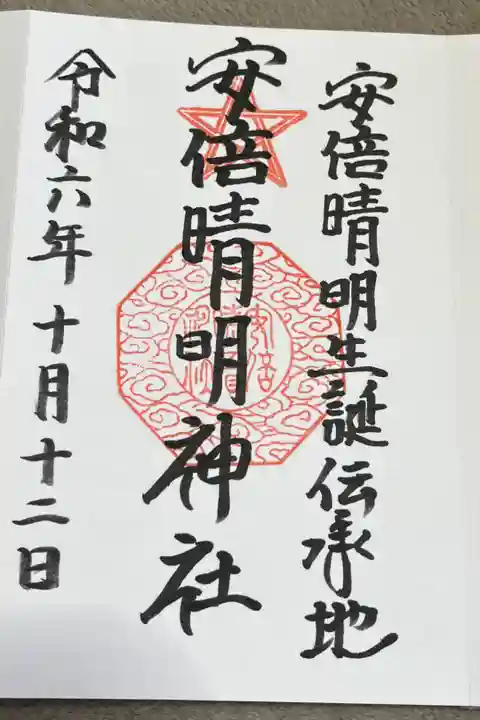 安倍晴明生誕伝承地
安倍晴明神社
令和六年十月十二日